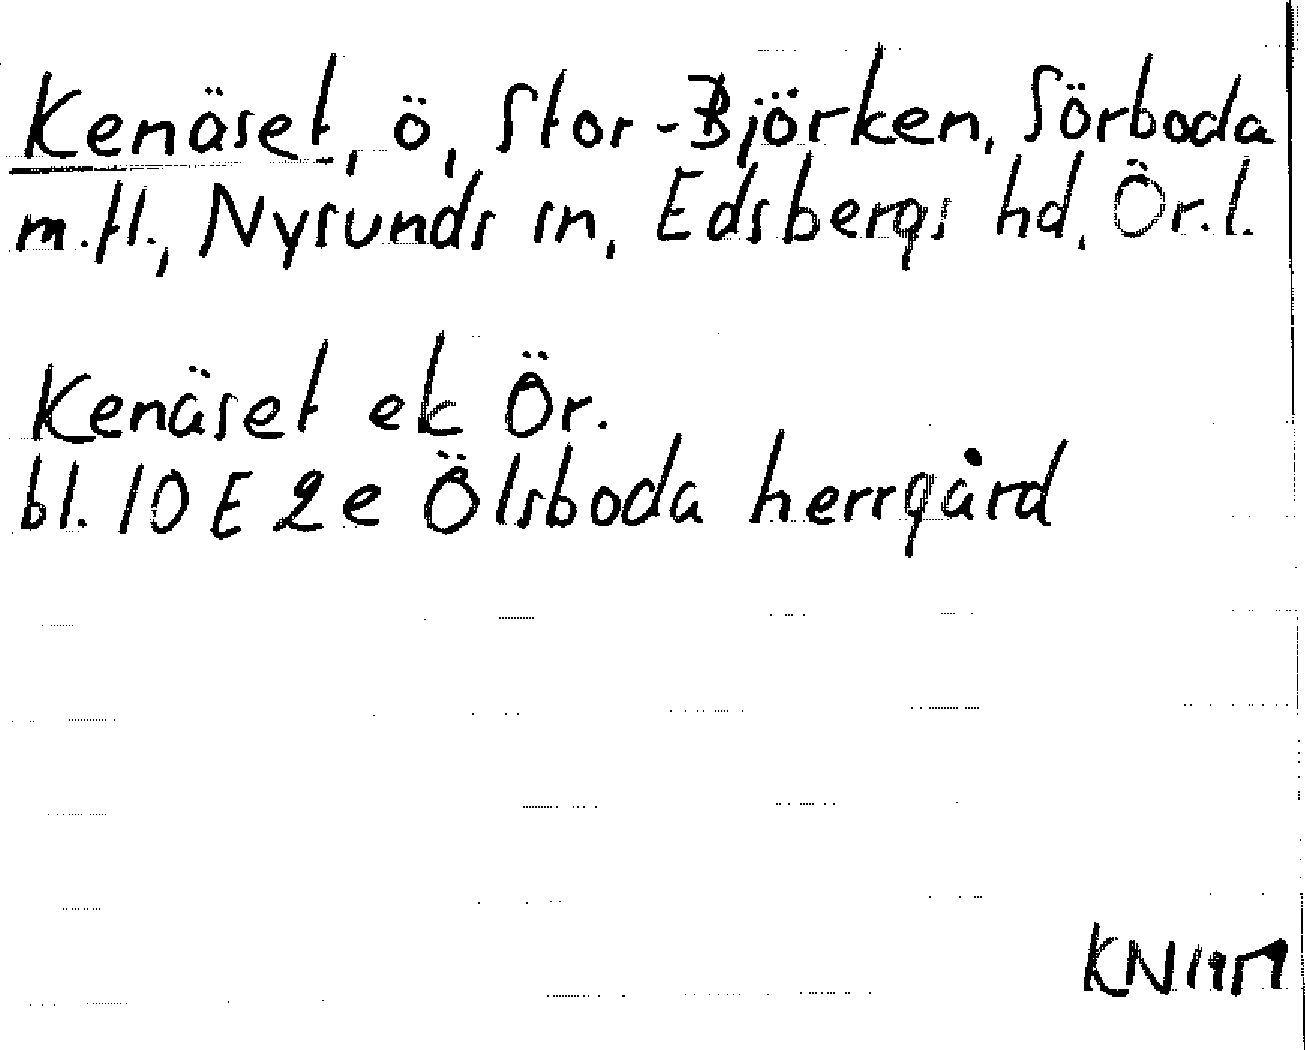 Kenäset, ö, Stor-Björken, Sörboda
m.fl., Nysunds sn, Edsbergs hd, Ör.l.
Kenäset ek Ör.
bl. 10 E 2e Ölsboda herrgård